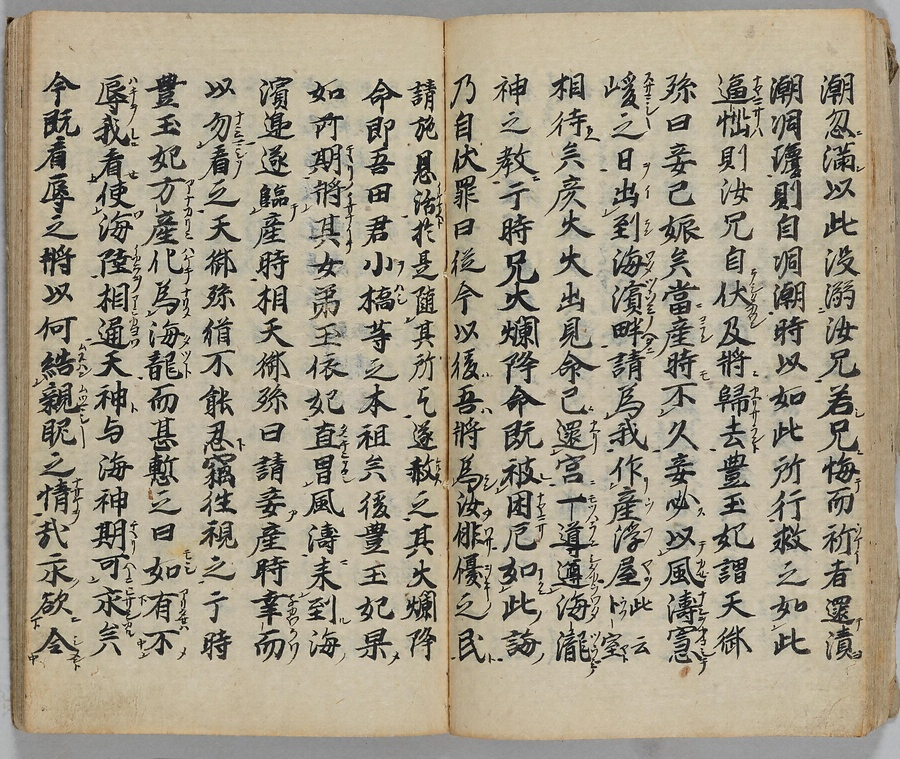 潮忽満以此没溺汝兄若兄悔而祈者還漬
潮涸瓊則自涸潮時以如此所行救之如此
逼惱則汝兄自伏及将歸去豊玉妃謂天御
孫曰妾已娠矣當産時不久妾必以風濤急
峻之日出到海濱畔請為我作産浮屋此云室
相待矣彦火火出見命已還宮一導遵海瀧
神之教于時兄火爛降命既被困厄如此詣
乃自伏罪曰従今以後吾将為汝俳優之民
請施恩活於是随其所乞遂赦之其火爛降
命即吾田君小橋等之本祖矣後豊玉妃果
如所期将其女弟玉依妃直冒風濤来到海
濱邊遂臨産時相天御孫曰請妾産時幸而
以勿看之天御孫猶不能忍竊往視之于時
豊玉妃方産化為海龍而甚慙之曰如有不
辱我看使海陸相通天神与海神期可永矣
今既看辱之将以何結親昵之情哉永欲令